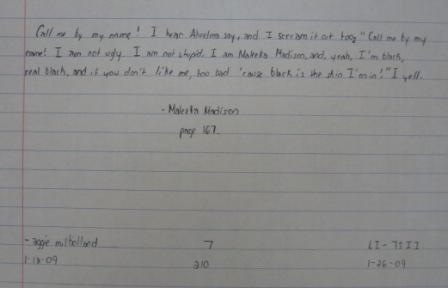 Call me by my name! I hear Akeelma say, and I scream it out too: "Call me by my
name! I am not ugly. I am not stupid. I am Maleeka Madison, and, yeah, I'm black,
real black, and if you don't like me, too bad 'cause black is the skin I'm in!" I yell.
- Maleeka Madison
page 167.
- aggie mulholland 7
1-12-09 210 1-26-09